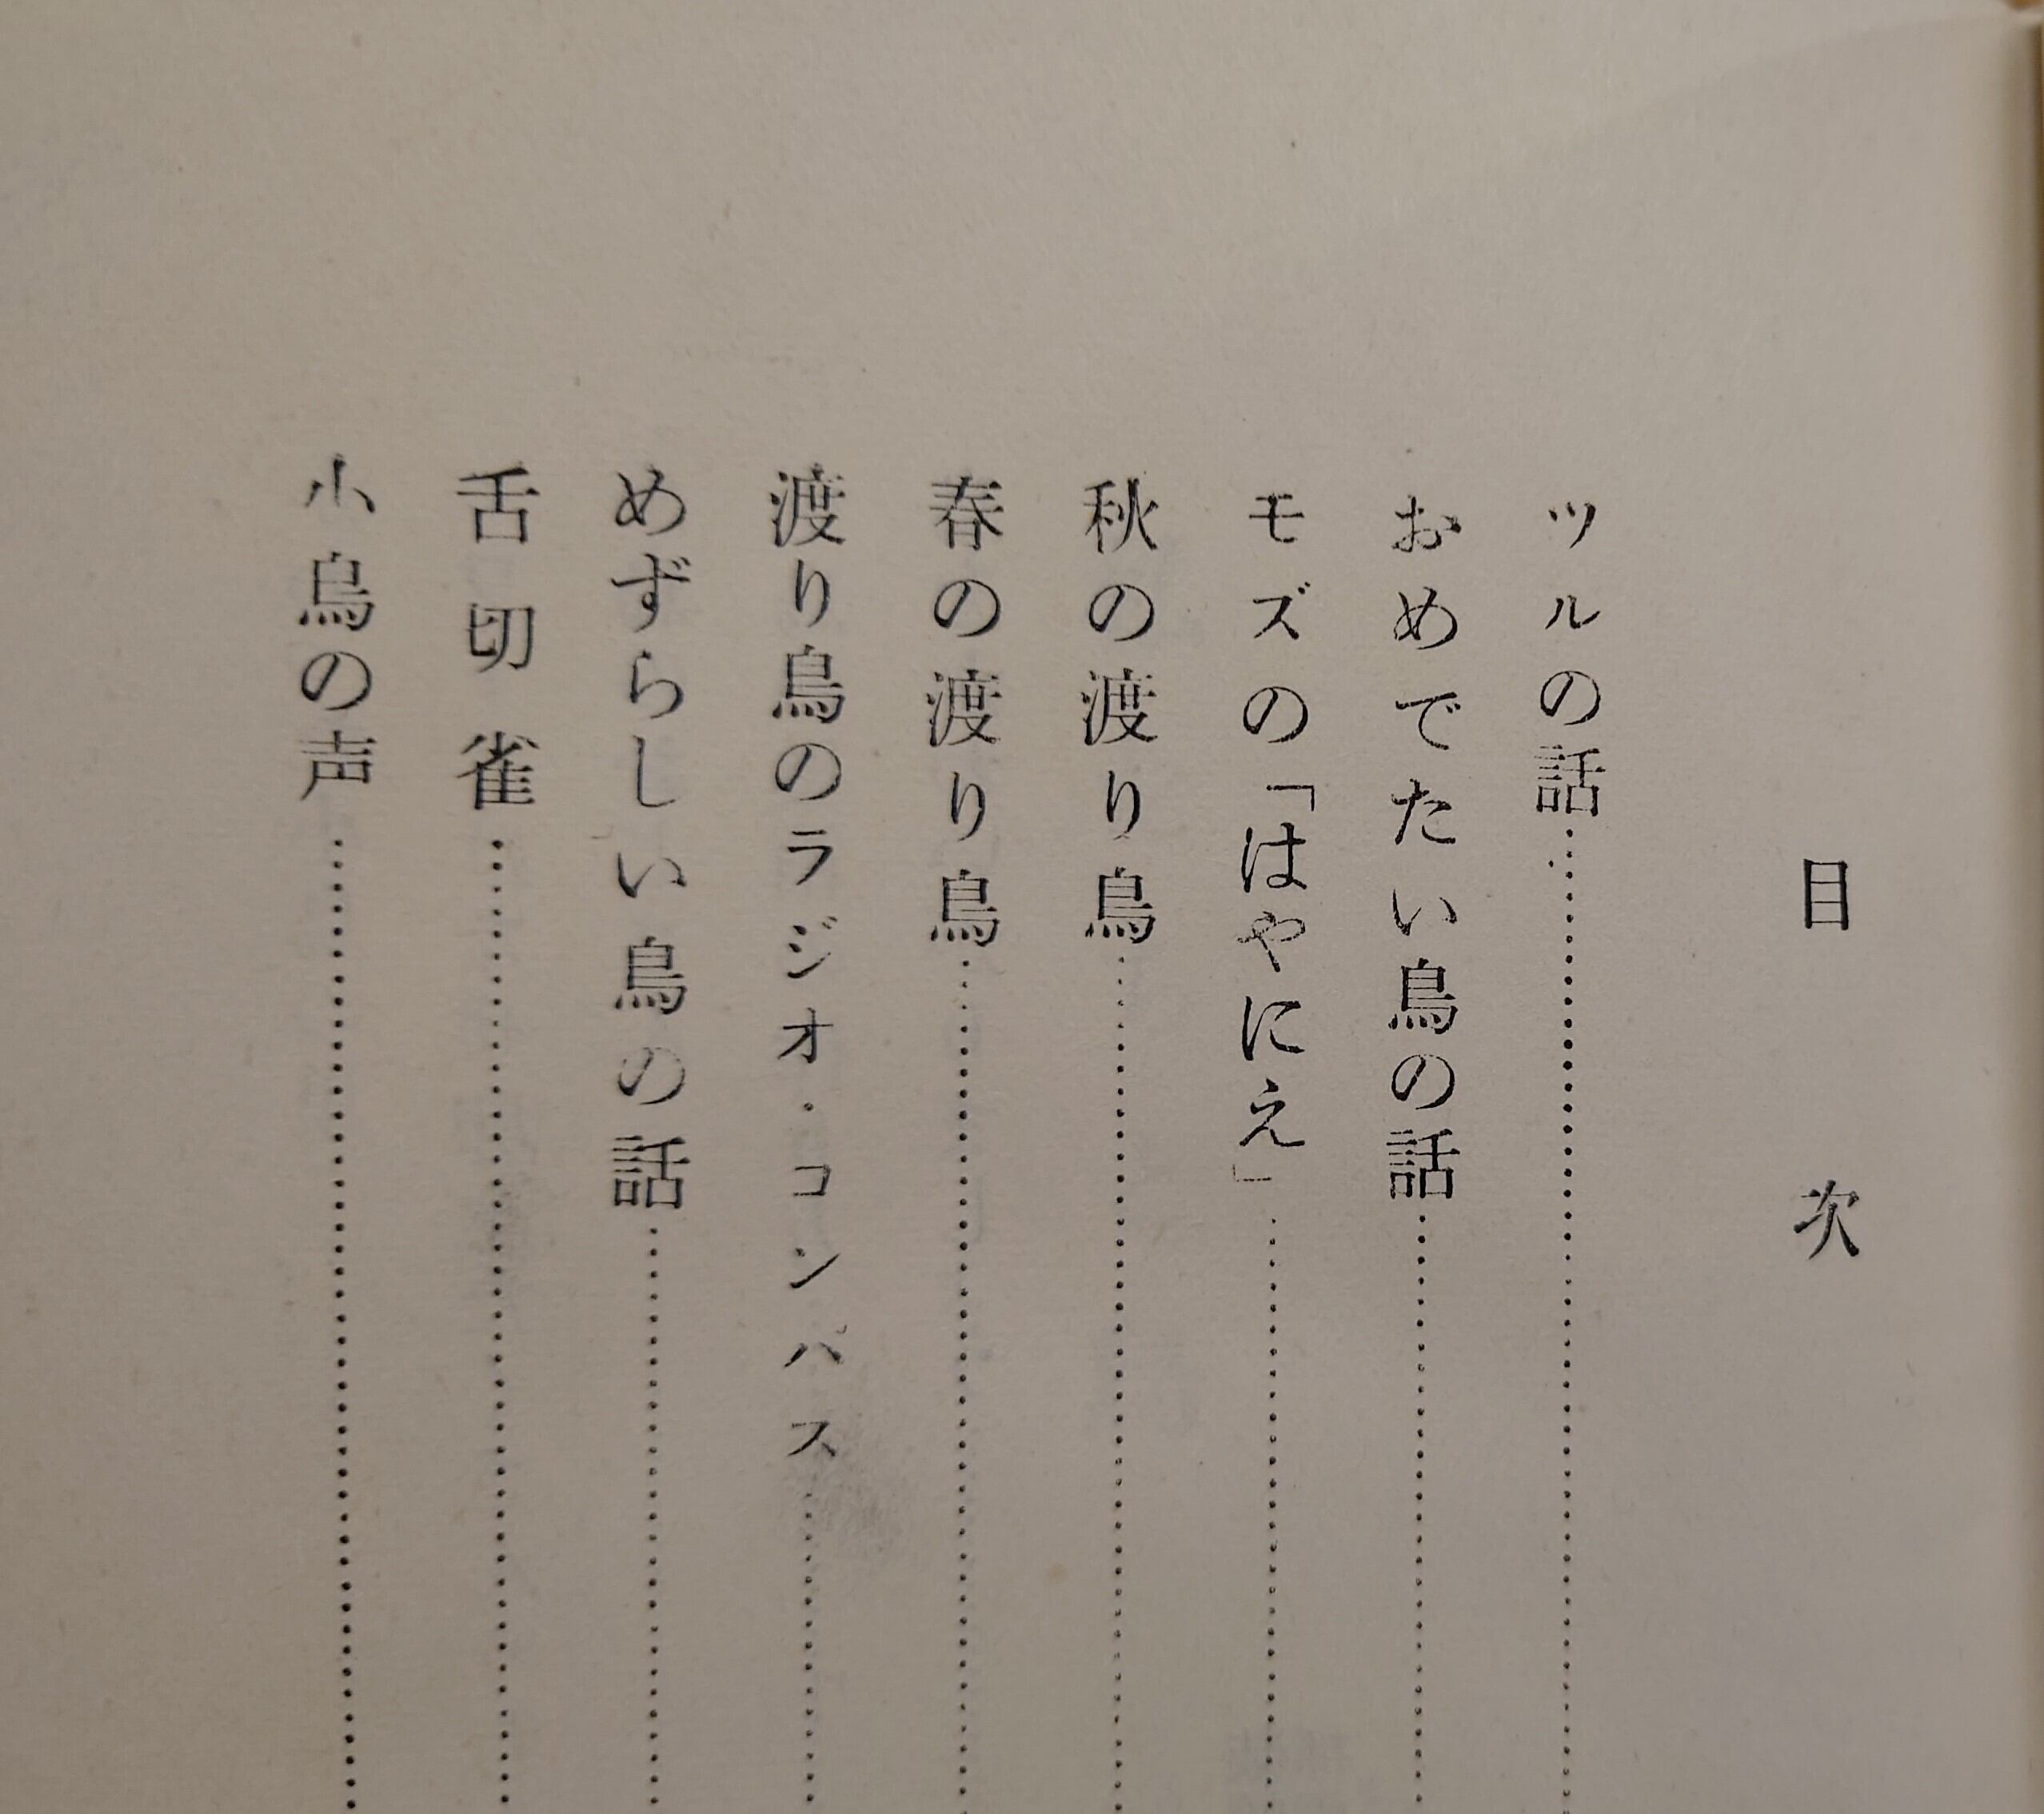 目次
ツルの話
おめでたい鳥の話
モズの「はやにえ」
秋の渡り鳥
春の渡り鳥
渡り鳥のラジオ・コンパス
めずらしい鳥の話
舌切雀
小鳥の声